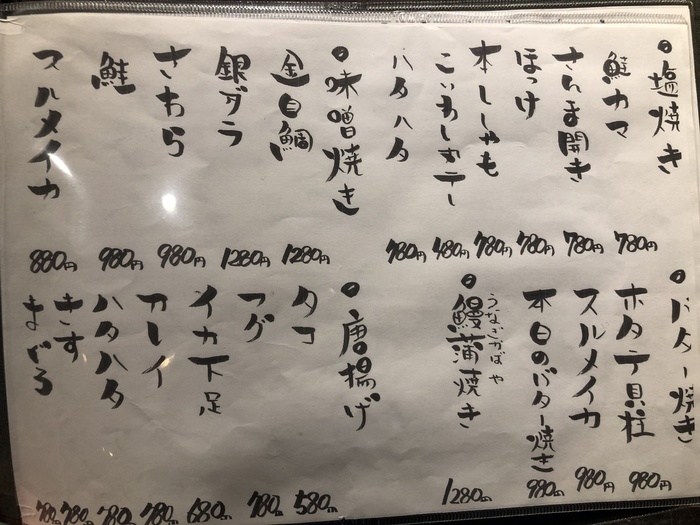 ○塩焼き
鮭カマ 780円
さんま開き 780円
ほっけ 780円
本ししゃも 780円
こいわし丸干し 480円
ハタハタ 780円
○味噌焼き
金目鯛 1280円
銀ダラ 1280円
さわら 980円
鮭 980円
スルメイカ 880円
○バター焼き
ホタテ貝柱 980円
スルメイカ 980円
本日のバター焼き 980円
○鰻蒲焼き 1280円
うなぎかばや
○唐揚げ
タコ 580円
フグ 780円
イカ下足 680円
カレイ 780円
ハタハタ 780円
きす 780円
まぐろ 780円